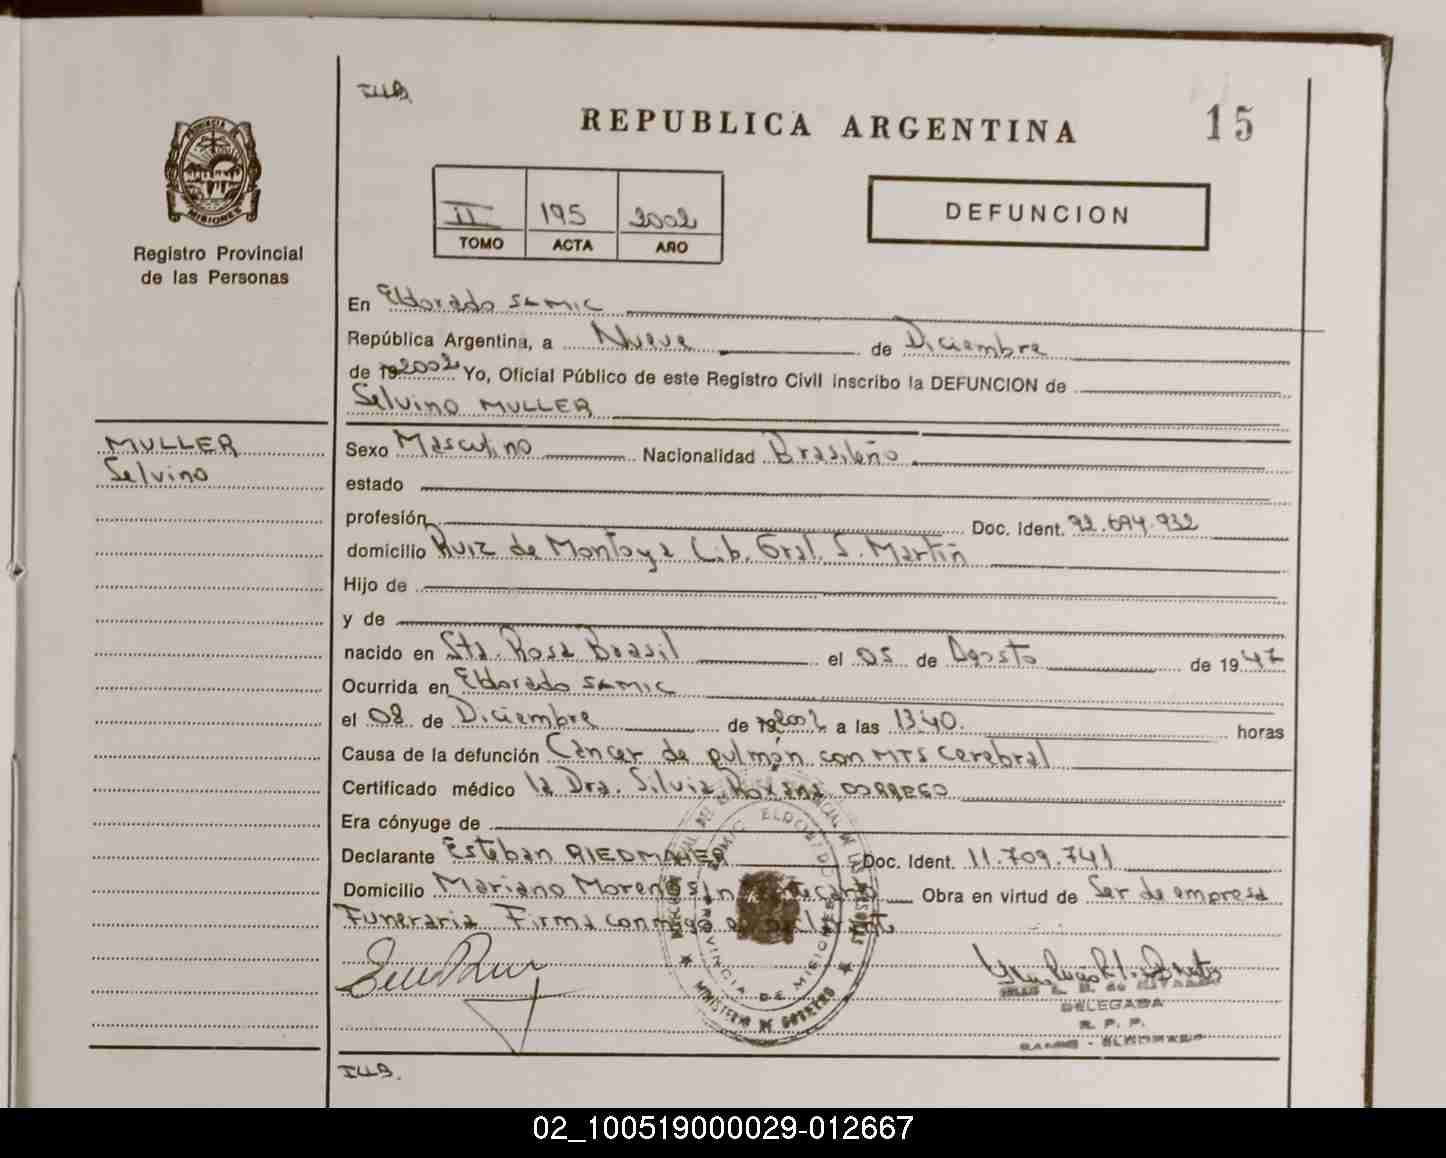 ILLB.
REPUBLICA ARGENTINA
15
PROVINCIA DE
MISIONES
Registro Provincial
de las Personas
II 195 2002
TOMO ACTA AÑO
DEFUNCION
En Eldorado SAMIC
República Argentina, a Nueve de Diciembre
de 192002 Yo, Oficial Público de este Registro Civil inscribo la DEFUNCION de
Selvino MULLER
MULLER
Selvino
Sexo Masculino Nacionalidad Brasileño
estado
profesión Doc. Ident. 92.694.932
domicilio Ruiz de Montoya Lib. Gral. S. Martín
Hijo de
y de
nacido en Sta. Rosa Brasil el 05 de Agosto de 1947
Ocurrida en Eldorado SAMIC
el 08 de Diciembre de 192002 a las 13:40. horas
Causa de la defunción Cáncer de pulmón con MTS cerebral
Certificado médico la Dra. Silvia Roxana DORREGO
Era cónyuge de
Declarante Esteban RIEDMAIER Doc. Ident. 11.709.741
Domicilio Mariano Moreno s/n Obra en virtud de Ser de empresa
Funeraria Firma conmigo
PROVINCIA DE MISIONES
MINISTERIO DE GOBIERNO
DELEGADA
R. P. P.
SAMIC - ELDORADO
ILLB.
02_100519000029-012667